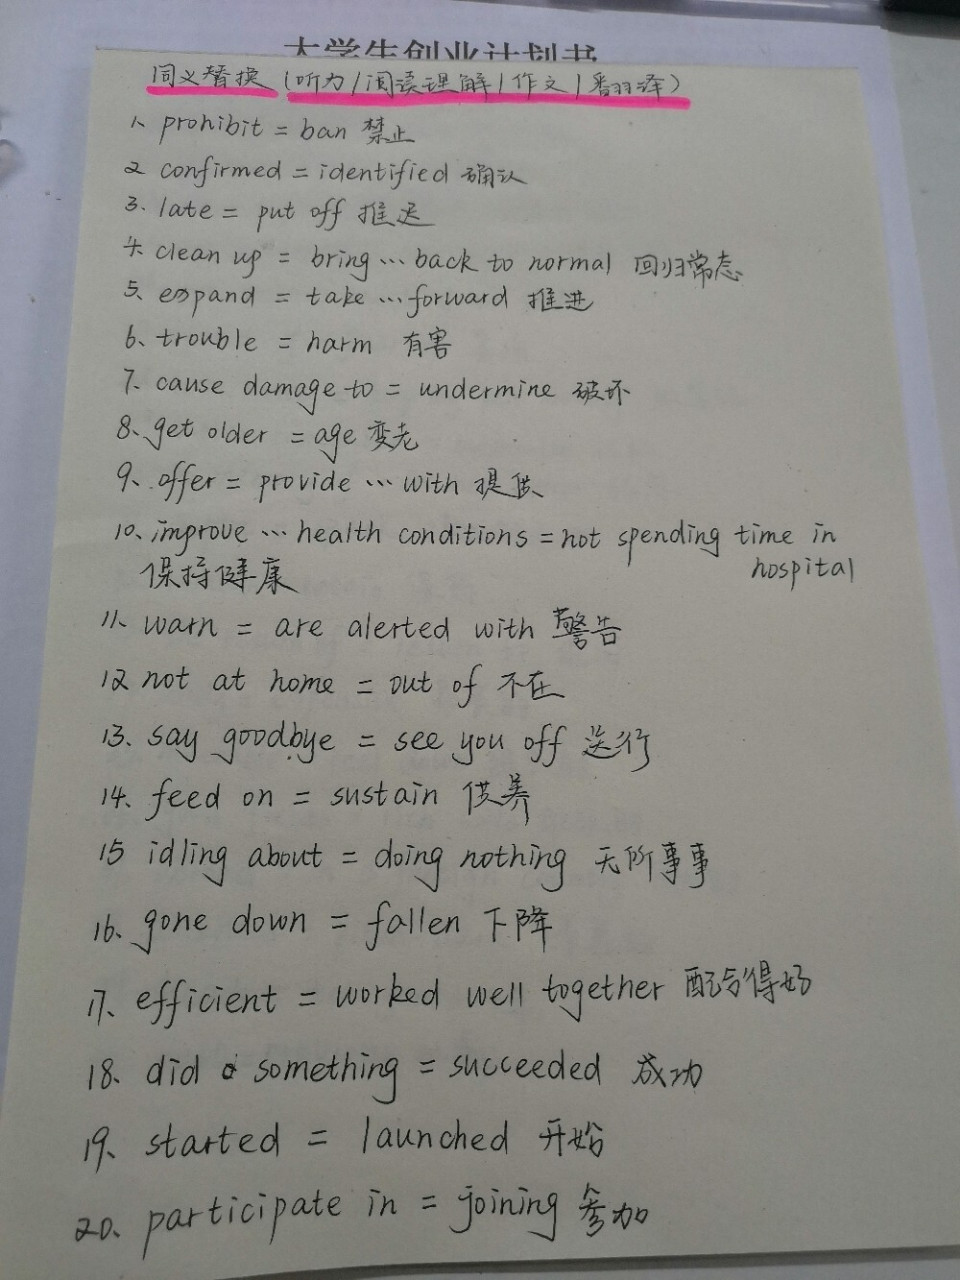 大学生创业计划书
同义替换 (听力/阅读理解/作文/翻译)
1. prohibit = ban 禁止
2 confirmed = identified 确认
3. late = put off 推迟
4. clean up = bring … back to normal 回归常态
5. expand = take … forward 推进
6、trouble = harm 有害
7. cause damage to = undermine 破坏
8. get older = age 变老
9、offer = provide … with 提供
10、improve … health conditions = not spending time in
hospital
保持健康
11. warn = are alerted with 警告
12 not at home = out of 不在
13. say goodbye = see you off 送行
14. feed on = sustain 供养
15 idling about = doing nothing 无所事事
16. gone down = fallen 下降
17. efficient = worked well together 配合得好
18、did something = succeeded 成功
19、started = launched 开始
20、participate in = joining 参加